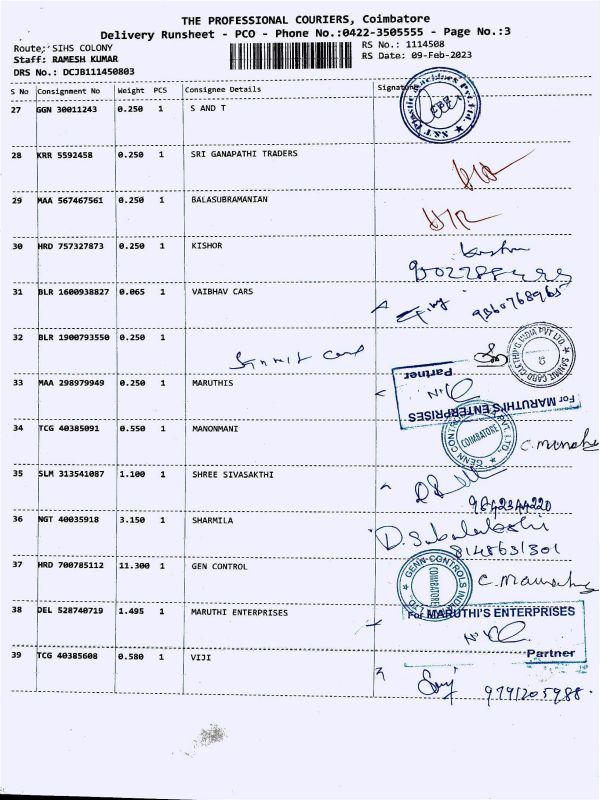 THE PROFESSIONAL COURIERS, Coimbatore
Delivery Runsheet - PCO - Phone No.:0422-3505555 - Page No.:3
Route; SIHS COLONY
RS No.: 1114508
Staff: RAMESH KUMAR
RS Date: 09-Feb-2023
DRS No.: DCJB111450803
S No Consignment No Weight PCS Consignee Details Signature
27 GGN 30011243 0.250 1 S AND T
28 KRR 5592458 0.250 1 SRI GANAPATHI TRADERS
29 MAA 567467561 0.250 1 BALASUBRAMANIAN
30 HRD 757327873 0.250 1 KISHOR
31 BLR 1600938827 0.065 1 VAIBHAV CARS
9360768965
32 BLR 1900793550 0.250 1
33 MAA 298979949 0.250 1 MARUTHIS
Partner
For MARUTHI'S ENTERPRISES
34 TCG 40385091 0.550 1 MANONMANI
COIMBATORE
35 SLM 313541087 1.100 1 SHREE SIVASAKTHI
9842344220
36 NGT 40035918 3.150 1 SHARMILA
8148631301
37 HRD 700785112 11.300 1 GEN CONTROL
GENN CONTROLS INDIA
COIMBATORE
38 DEL 528740719 1.495 1 MARUTHI ENTERPRISES
For MARUTHI'S ENTERPRISES
Partner
39 TCG 40385608 0.580 1 VIJI
9791205988